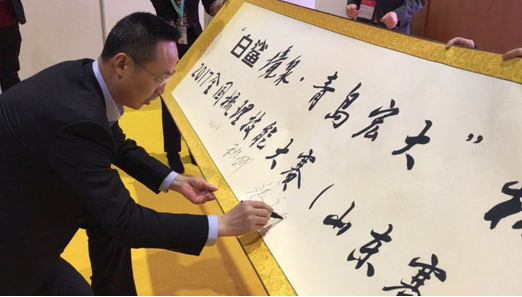 “白鲨·青岛宏大”
2017全国梳理技能大赛(山东赛